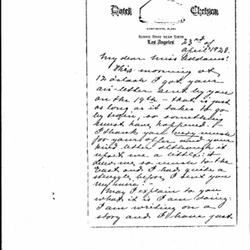 Hotel Chelsea
Los Angeles
23rd of
April 1928.
My dear Miss
This morning at
12 o'clock I got your
air-letter sent by you
on the 19th - that is just
as long as it takes to go
by train, so something
must have happened. I
thank you very much
for your offer and your
kind letter although it
upset me a little; it
drew me so much to the
East and I had quite a
struggle before I sent you
my wire:-
May I explain to you
what it is I am doing:
I am writing on a
story and I have just